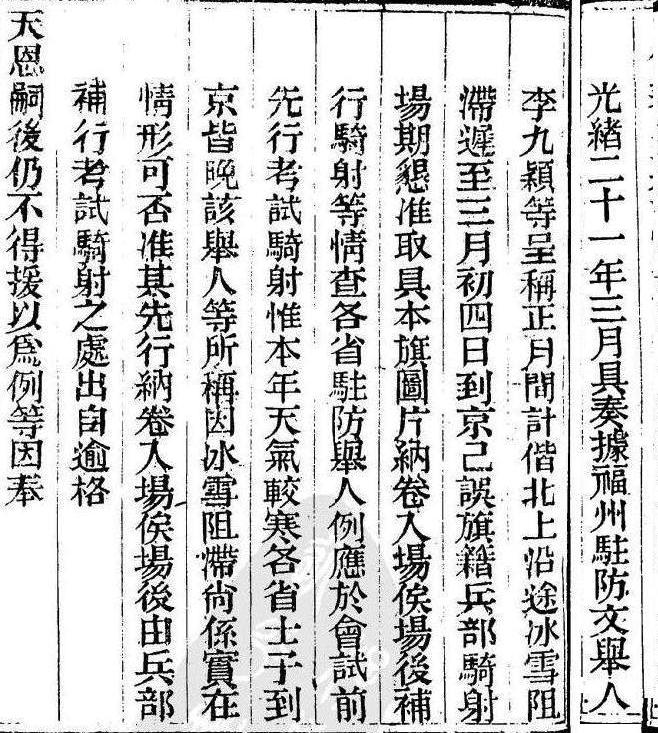 光緒二十一年三月具奏據福州駐防文舉人
李九穎等呈稱正月間計偕北上沿途冰雪阻
滯遲至三月初四日到京己誤旗籍兵部騎射
場期懇准取具本旗圖片納卷入場俟場後補
行騎射等情查各省駐防舉人例應於會試前
先行考試騎射惟本年天氣較寒各省士子到
京皆晚該舉人等所稱因冰雪阻滯尙係實在
情形可否准其先行納卷入場俟場後由兵部
補行考試騎射之處出自逾格
天恩嗣後仍不得援以爲例等因奉